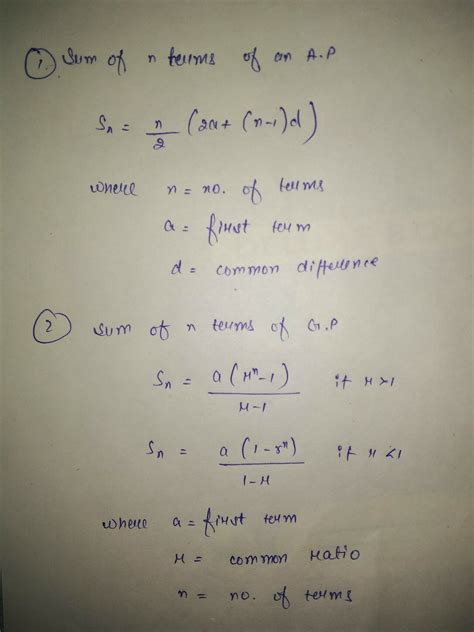 ① Sum of n terms of an A.P
Sn = n/2 (2a + (n-1)d)
where n = no. of terms
a = first term
d = common difference
② sum of n terms of G.P
Sn = a(r^n-1)/r-1 if r>1
Sn = a(1-r^n)/1-r if r<1
where a = first term
r = common ratio
n = no. of terms